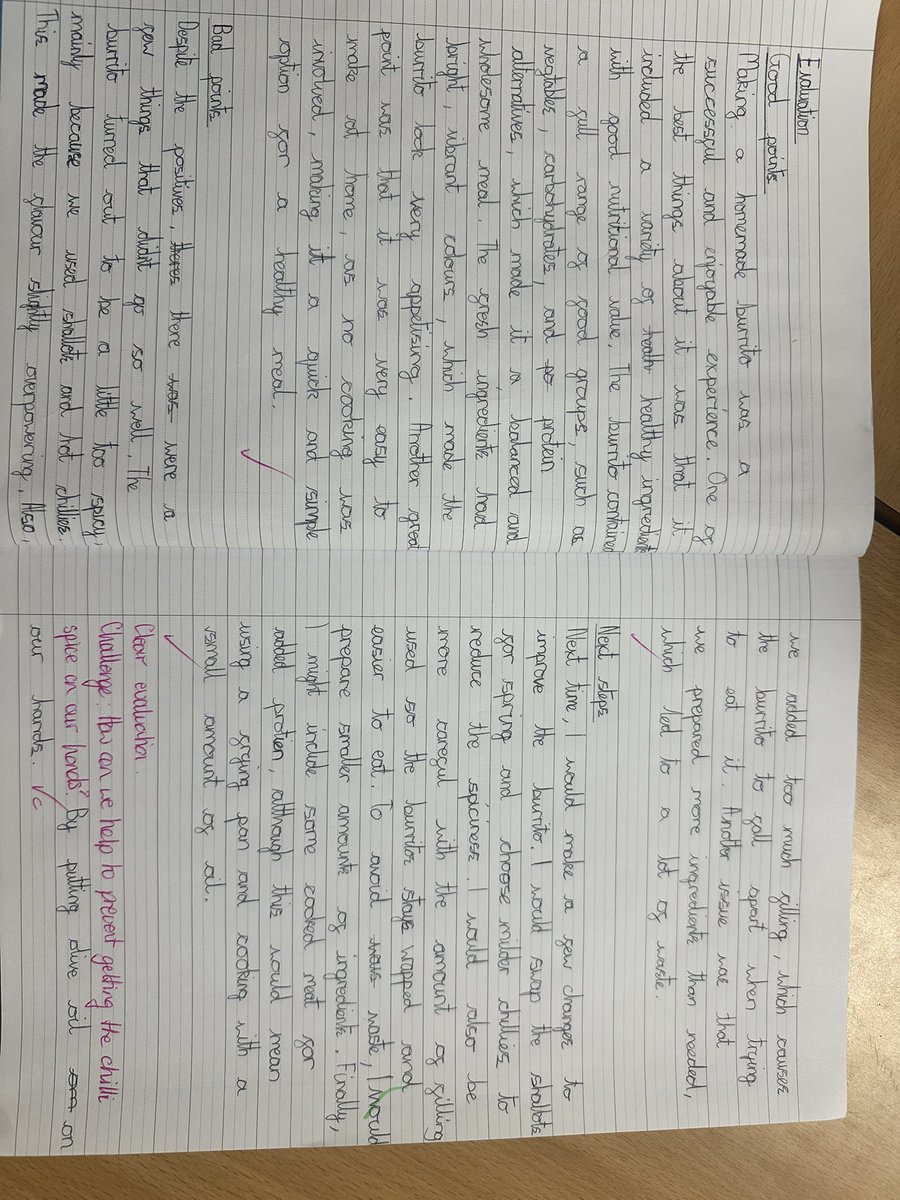 Evaluation
Good points
Making a homemade burrito was a
successful and enjoyable experience. One of
the best things about it was that it
included a variety of health healthy ingredients
with good nutritional value. The burrito contained
a full range of food groups, such as
vegtables, carbohydrates, and po protein
alternatives, which made it a balanced and
wholesome meal. The fresh ingredients had
bright, vibrant colours, which made the
burrito look very appetising. Another great
point was that it was very easy to
make at home, as no cooking was
involved, making it a quick and simple
option for a healthy meal.
Bad points
Despite the positives, theres there was were a
few things that didnt go so well. The
burrito turned out to be a little too spicy,
mainly because we used shallots and hot chillies.
This made the flavour slightly overpowering. Also,
we added too much filling, which causes
the burrito to fall apart when trying
to eat it. Another issue was that
we prepared more ingredients than needed,
which led to a lot of waste.
Next steps
Next time, I would make a few changes to
improve the burrito. I would swap the shallots
for spring and choose milder chillies to
reduce the spiciness. I would also be
more careful with the amount of filling
used so the burritos stays wrapped and
easier to eat. To avoid waste, I would
prepare smaller amounts of ingredients. Finally,
I might include some cooked meat for
added protien, although this would mean
using a frying pan and cooking with a
small amount of oil.
Clear evaluation.
Challenge: How can we help to prevent getting the chilli
spice on our hands? By putting olive oil on
our hands. Vc